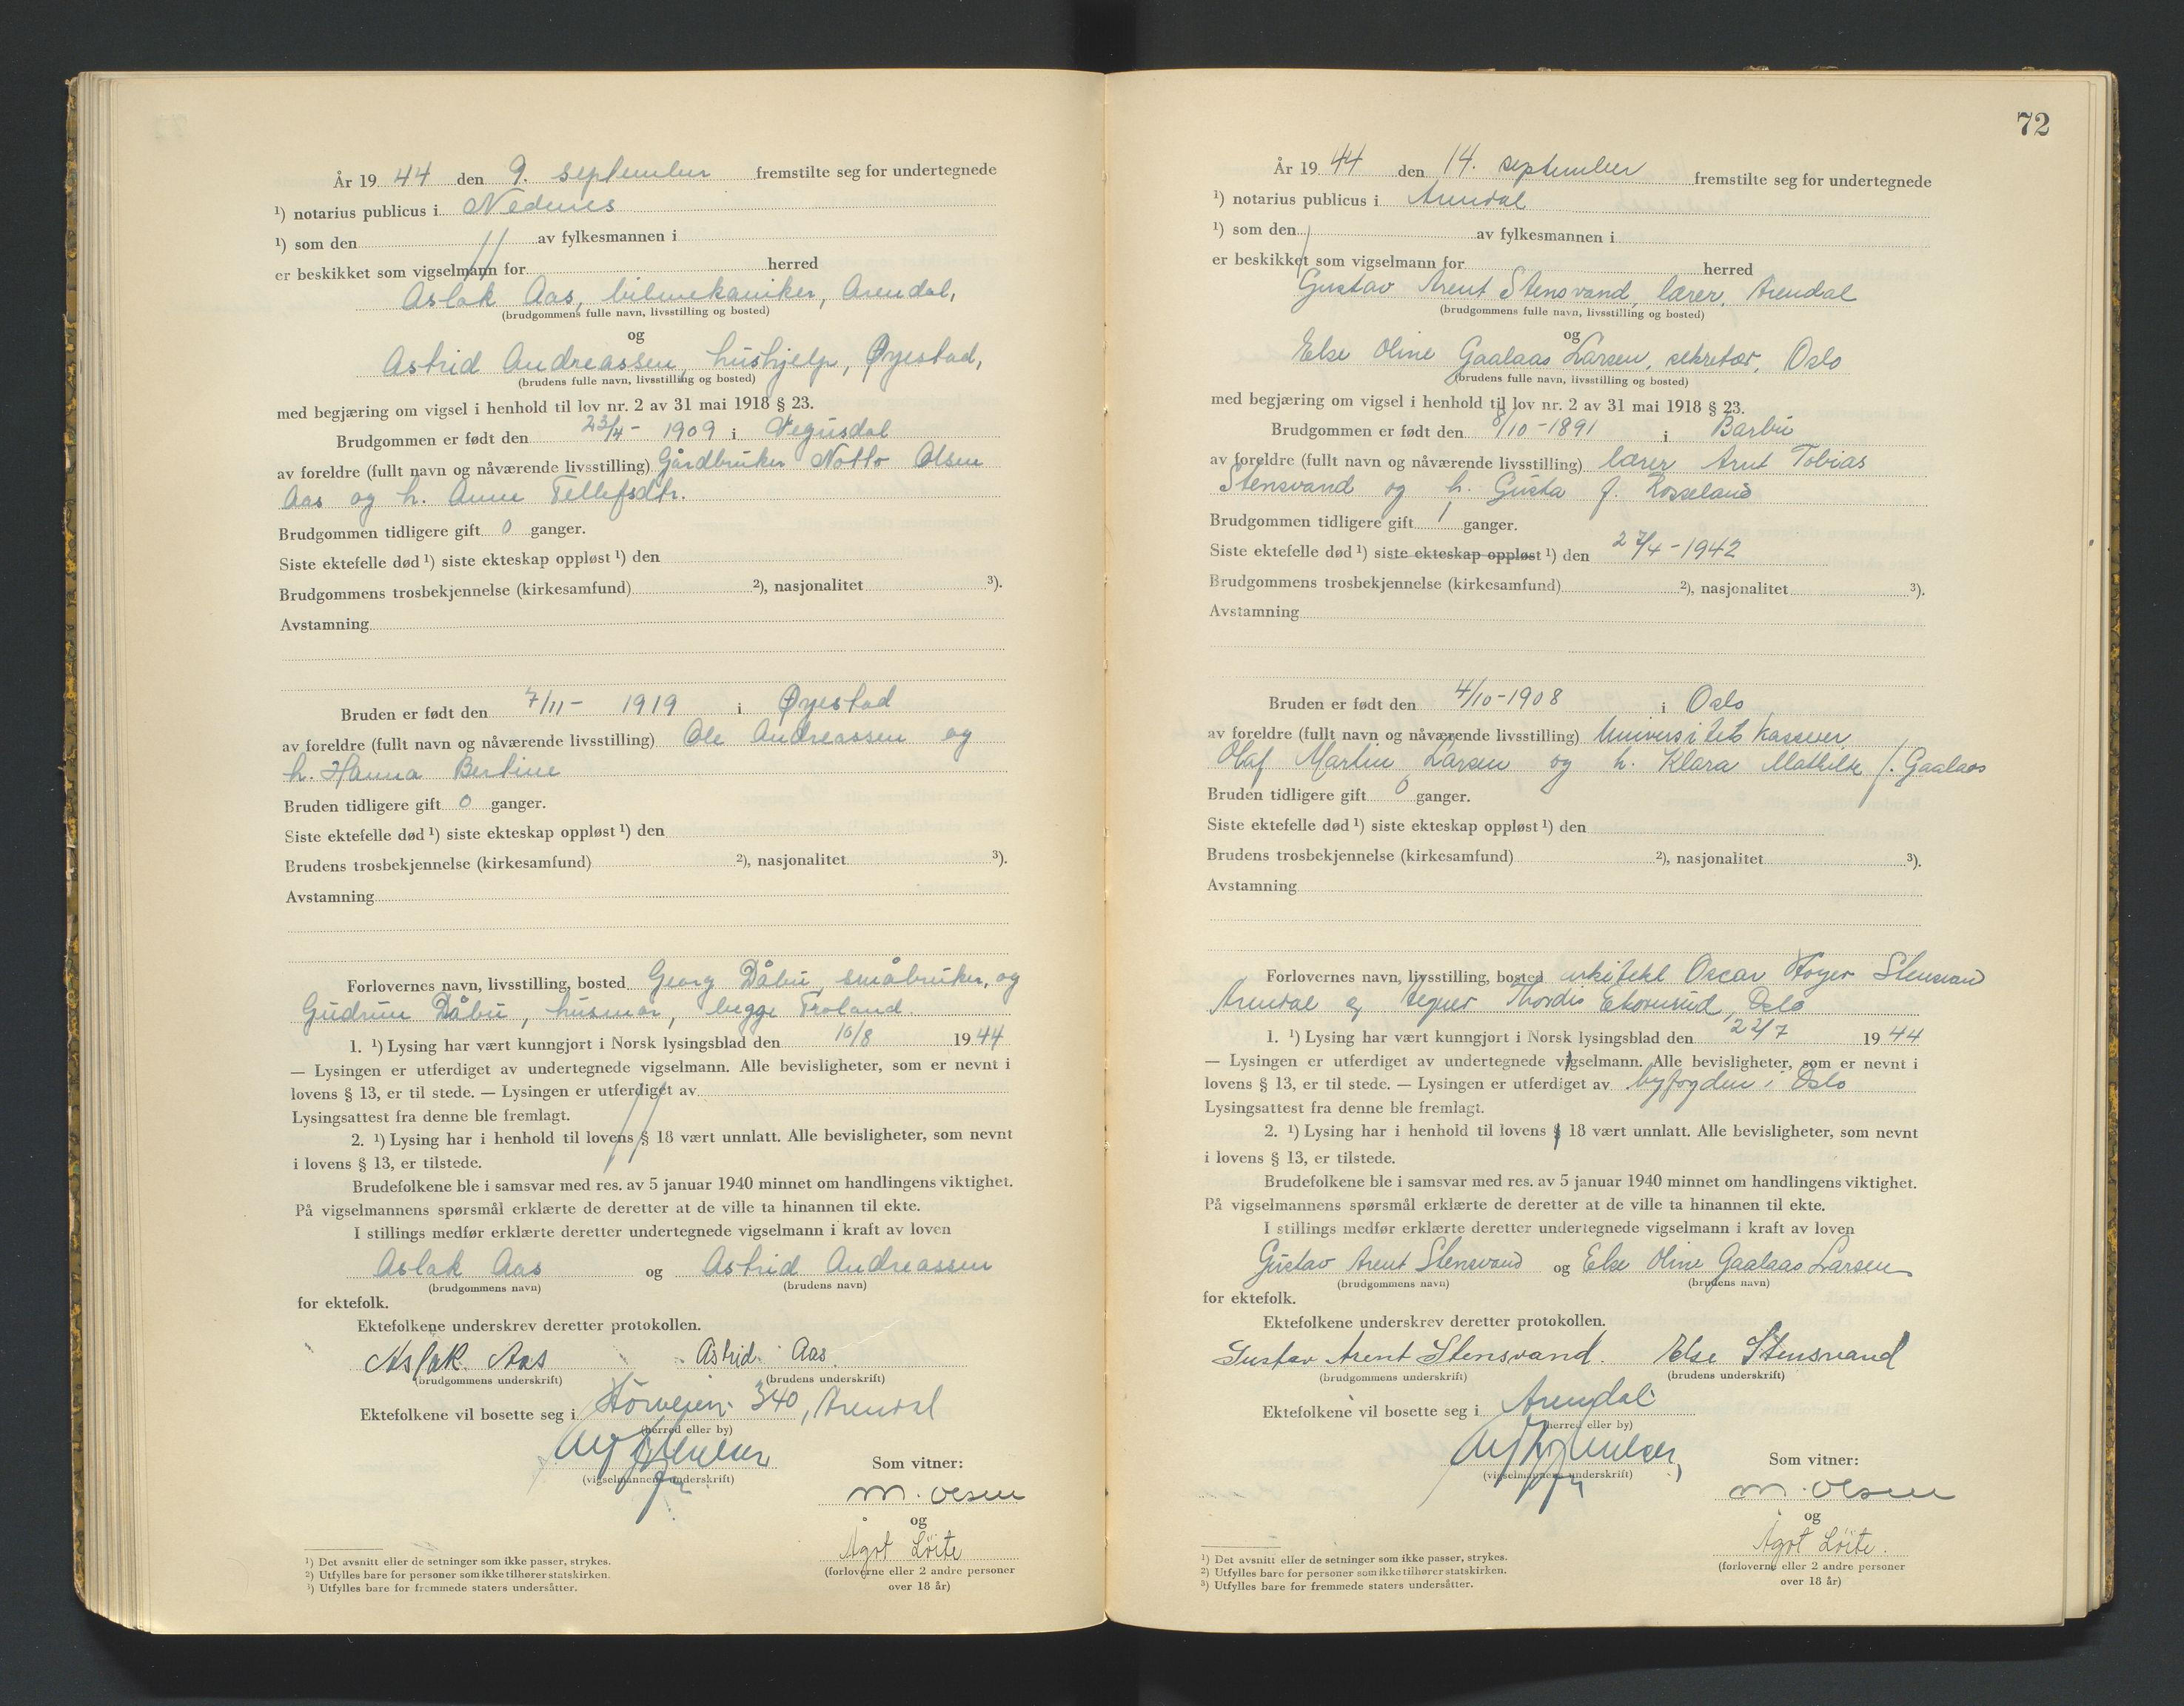 År 19 44 den 9. september fremstilte seg for undertegnede
¹) notarius publicus i Nedenes
¹) som den av fylkesmannen i
er beskikket som vigselmann for herred
Aslak Aas, bilmekaniker, Arendal,
(brudgommens fulle navn, livsstilling og bosted)
og
Astrid Andreassen, hushjelp, Øyestad,
(brudens fulle navn, livsstilling og bosted)
med begjæring om vigsel i henhold til lov nr. 2 av 31 mai 1918 § 23.
Brudgommen er født den 23/4 - 1909 i Vegusdal
av foreldre (fullt navn og nåværende livsstilling) Gårdbruker Notto Olsen
Aas og h. Anne Tellefsdtr.
Brudgommen tidligere gift 0 ganger.
Siste ektefelle død ¹) siste ekteskap oppløst ¹) den
Brudgommens trosbekjennelse (kirkesamfund) ²), nasjonalitet ³).
Avstamning
Bruden er født den 7/11 - 1919 i Øyestad
av foreldre (fullt navn og nåværende livsstilling) Ole Andreassen og
h. Hanna Bertine
Bruden tidligere gift 0 ganger.
Siste ektefelle død ¹) siste ekteskap oppløst ¹) den
Brudens trosbekjennelse (kirkesamfund) ²), nasjonalitet ³).
Avstamning
Forlovernes navn, livsstilling, bosted Georg Dåbu, småbruker, og
Gudrun Dåbu, husmor, begge Froland.
1. ¹) Lysing har vært kunngjort i Norsk lysingsblad den 10/8 19 44
— Lysingen er utferdiget av undertegnede vigselmann. Alle bevisligheter, som er nevnt i
lovens § 13, er til stede. — Lysingen er utferdiget av
Lysingsattest fra denne ble fremlagt.
2. ¹) Lysing har i henhold til lovens § 18 vært unnlatt. Alle bevisligheter, som nevnt
i lovens § 13, er tilstede.
Brudefolkene ble i samsvar med res. av 5 januar 1940 minnet om handlingens viktighet.
På vigselmannens spørsmål erklærte de deretter at de ville ta hinannen til ekte.
I stillings medfør erklærte deretter undertegnede vigselmann i kraft av loven
Aslak Aas og Astrid Andreassen
(brudgommens navn) (brudens navn)
for ektefolk.
Ektefolkene underskrev deretter protokollen.
Aslak Aas Astrid Aas.
(brudgommens underskrift) (brudens underskrift)
Ektefolkene vil bosette seg i 340, Arendal
(herred eller by)
(vigselmannens underskrift)
Som vitner:
M. Olsen
og
Ågot Löite
(forloverne eller 2 andre personer
over 18 år)
¹) Det avsnitt eller de setninger som ikke passer, strykes.
²) Utfylles bare for personer som ikke tilhører statskirken.
³) Utfylles bare for fremmede staters undersåtter.
72
År 19 44 den 14. september fremstilte seg for undertegnede
¹) notarius publicus i Arendal
¹) som den av fylkesmannen i
er beskikket som vigselmann for herred
Gustav Arent Stensvand, lærer, Arendal
(brudgommens fulle navn, livsstilling og bosted)
og
Else Oline Gaalaas Larsen, sekretær, Oslo
(brudens fulle navn, livsstilling og bosted)
med begjæring om vigsel i henhold til lov nr. 2 av 31 mai 1918 § 23.
Brudgommen er født den 8/10 - 1891 i Barbu
av foreldre (fullt navn og nåværende livsstilling) lærer Arnt Tobias
Stensvand og h. Gusta f. Rosseland
Brudgommen tidligere gift 1 ganger.
Siste ektefelle død ¹) siste ekteskap oppløst ¹) den 27/4 - 1942
Brudgommens trosbekjennelse (kirkesamfund) ²), nasjonalitet ³).
Avstamning
Bruden er født den 4/10 - 1908 i Oslo
av foreldre (fullt navn og nåværende livsstilling) Universitets kasserer
Olaf Martin Larsen og h. Klara Mathilde f. Gaalaas
Bruden tidligere gift 0 ganger.
Siste ektefelle død ¹) siste ekteskap oppløst ¹) den
Brudens trosbekjennelse (kirkesamfund) ²), nasjonalitet ³).
Avstamning
Forlovernes navn, livsstilling, bosted arkitekt Oscar Høyer Stensvand
Arendal og Thordis Ekornrud, Oslo
1. ¹) Lysing har vært kunngjort i Norsk lysingsblad den 22/7 19 44
— Lysingen er utferdiget av undertegnede vigselmann. Alle bevisligheter, som er nevnt i
lovens § 13, er til stede. — Lysingen er utferdiget av byfogden i Oslo
Lysingsattest fra denne ble fremlagt.
2. ¹) Lysing har i henhold til lovens § 18 vært unnlatt. Alle bevisligheter, som nevnt
i lovens § 13, er tilstede.
Brudefolkene ble i samsvar med res. av 5 januar 1940 minnet om handlingens viktighet.
På vigselmannens spørsmål erklærte de deretter at de ville ta hinannen til ekte.
I stillings medfør erklærte deretter undertegnede vigselmann i kraft av loven
Gustav Arent Stensvand og Else Oline Gaalaas Larsen
(brudgommens navn) (brudens navn)
for ektefolk.
Ektefolkene underskrev deretter protokollen.
Gustav Arent Stensvand. Else Stensvand
(brudgommens underskrift) (brudens underskrift)
Ektefolkene vil bosette seg i Arendal
(herred eller by)
(vigselmannens underskrift)
Som vitner:
M. Olsen
og
Ågot Löite.
(forloverne eller 2 andre personer
over 18 år)
¹) Det avsnitt eller de setninger som ikke passer, strykes.
²) Utfylles bare for personer som ikke tilhører statskirken.
³) Utfylles bare for fremmede staters undersåtter.